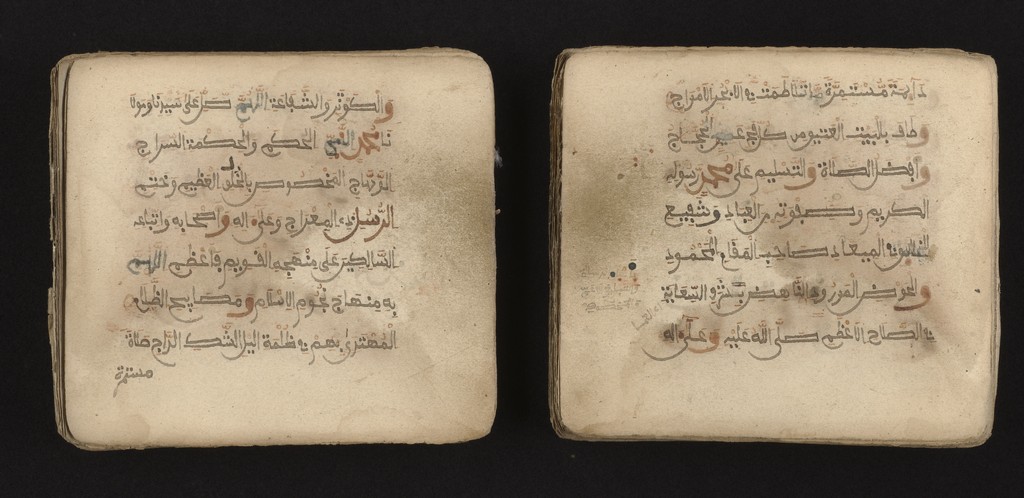 والكوثر والشفاعة اللهم صل على سيدنا ومولا
نا محمد النبي الحكم والحكمة السراج
الوهاج المخصوص بالخلق العظيم وختم
الرسل ذي المعراج وعلى اله واصحابه واتباعه
السالكين على منهجه القويم فاعظم اللهم
به منهاج نجوم الاسلام ومصابيح الظلام
المهتدى بهم في ظلمة اليل الشك الداج صلاة
مستمرة
دايمة مستمرة ما تلاطمت في الابحر الامواج
وطاف بالبيت العتيق من كل فج عميق الحجاج
وافضل الصلاة والتسليم على محمد رسوله
الكريم وصفوته من العباد وشفيع
الخلائق الميعاد صاحب المقام المحمود
والحوض المورود السعاية
في الصلاح الاعظم صلى الله عليه وعلى اله